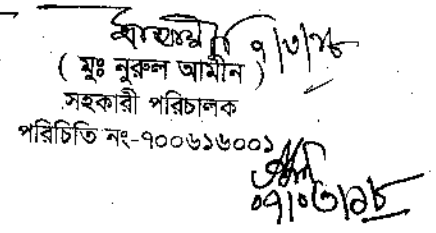 ৭/৩/১৮
( মুঃ নুরুল আমীন )
সহকারী পরিচালক
পরিচিতি নং-৭০০৬১৬০০১
০৭/০৩/১৮